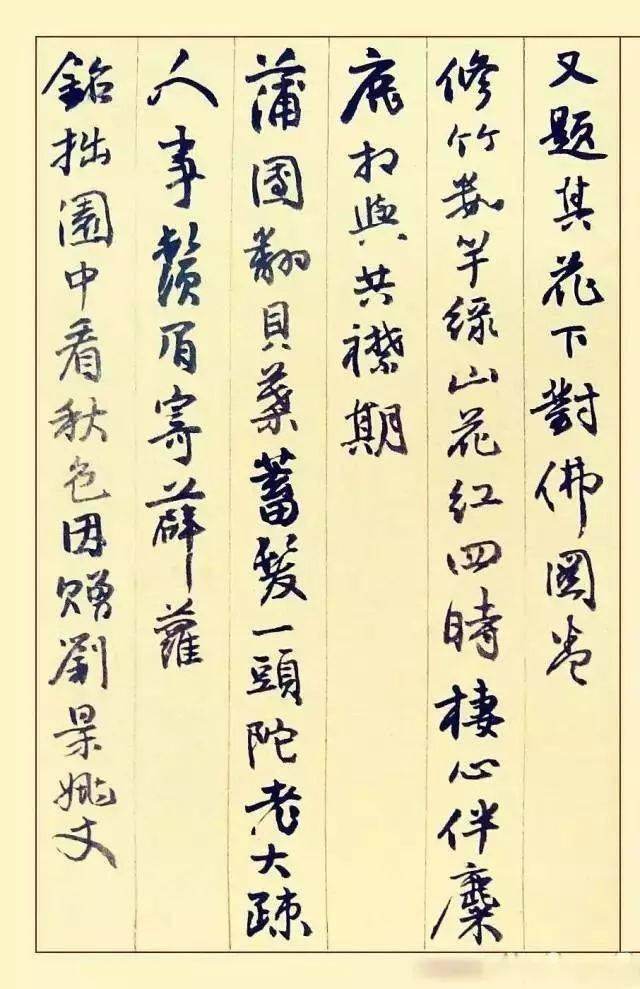 又題其花下對佛圖卷
修竹數竿綠山花紅四時棲心伴麋
鹿相與共襟期
蒲團翻貝葉蓄髮一頭陀老大疎
人事鬚眉寄薜蘿
拙園中看秋色因贈劉景姚丈